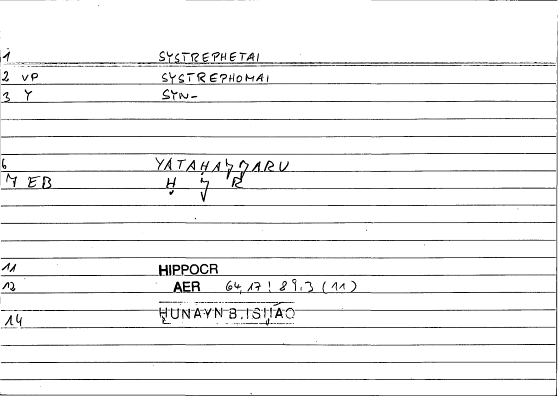 1 SYSTREPHETAI
2 VP SYSTREPHOMAI
3 Y SYN-
6 YATAḤAJJARU
7 EB Ḥ J R
11 HIPPOCR
AER 64,17 ! 89.3 (11)
14 ḤUNAYN B. ISḤĀQ